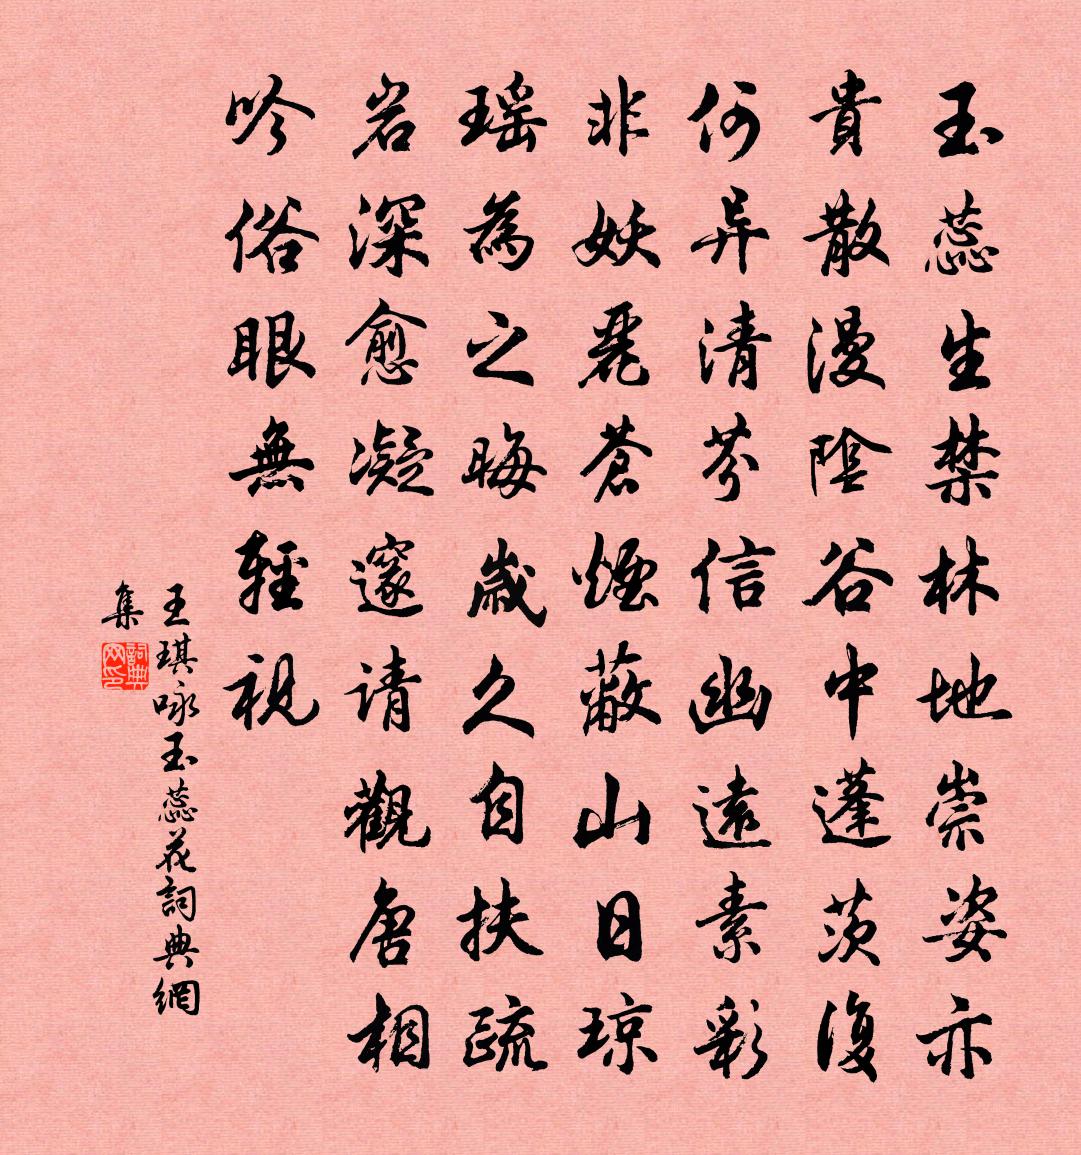 玉蕊生禁林地崇姿亦
貴散漫陰谷中蓬茨復
何异清芬信幽遠素彩
非妖麗蒼煙蔽山日瓊
瑶為之晦歲久自扶疏
岩深愈凝邃请觀唐相
吟俗眼無輕視
王琪咏玉蕊花詞典網
集
詞典網印